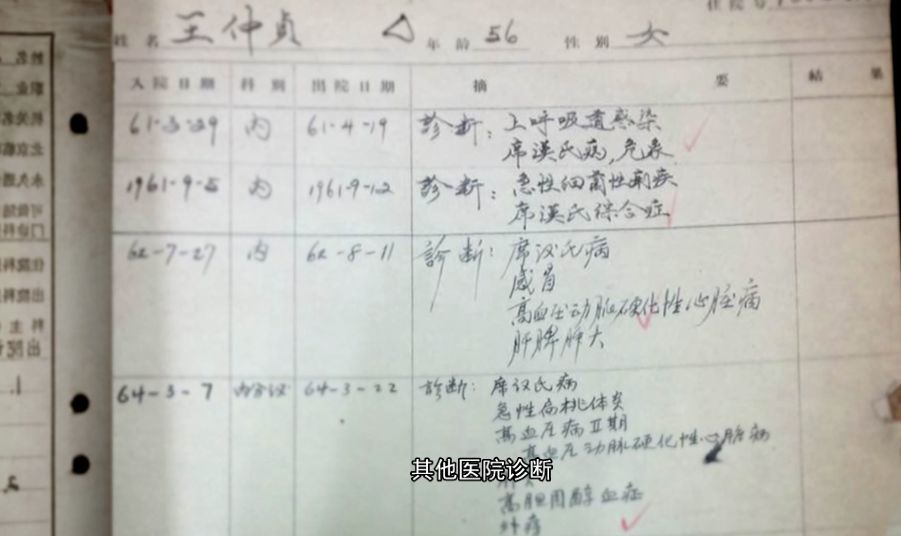 住院号
姓名 王仲贞 △ 年龄 56 性别 女
入院日期 科别 出院日期 摘要 结果
61-3-29 内 61-4-19 診断: 上呼吸道感染
席漢氏病,危象
1961-9-5 内 1961-9-12 診断: 急性细菌性痢疾
席漢氏综合症
62-7-27 内 62-8-11 診断: 席汉氏病
感冒
高血压动脉硬化性心脏病
肝脾肿大
64-3-7 内分泌 64-3-22 診断: 席汉氏病
急性扁桃体炎
高血压病II期
高血压动脉硬化性心脏病
其他医院诊断
高胆固醇血症
外痔